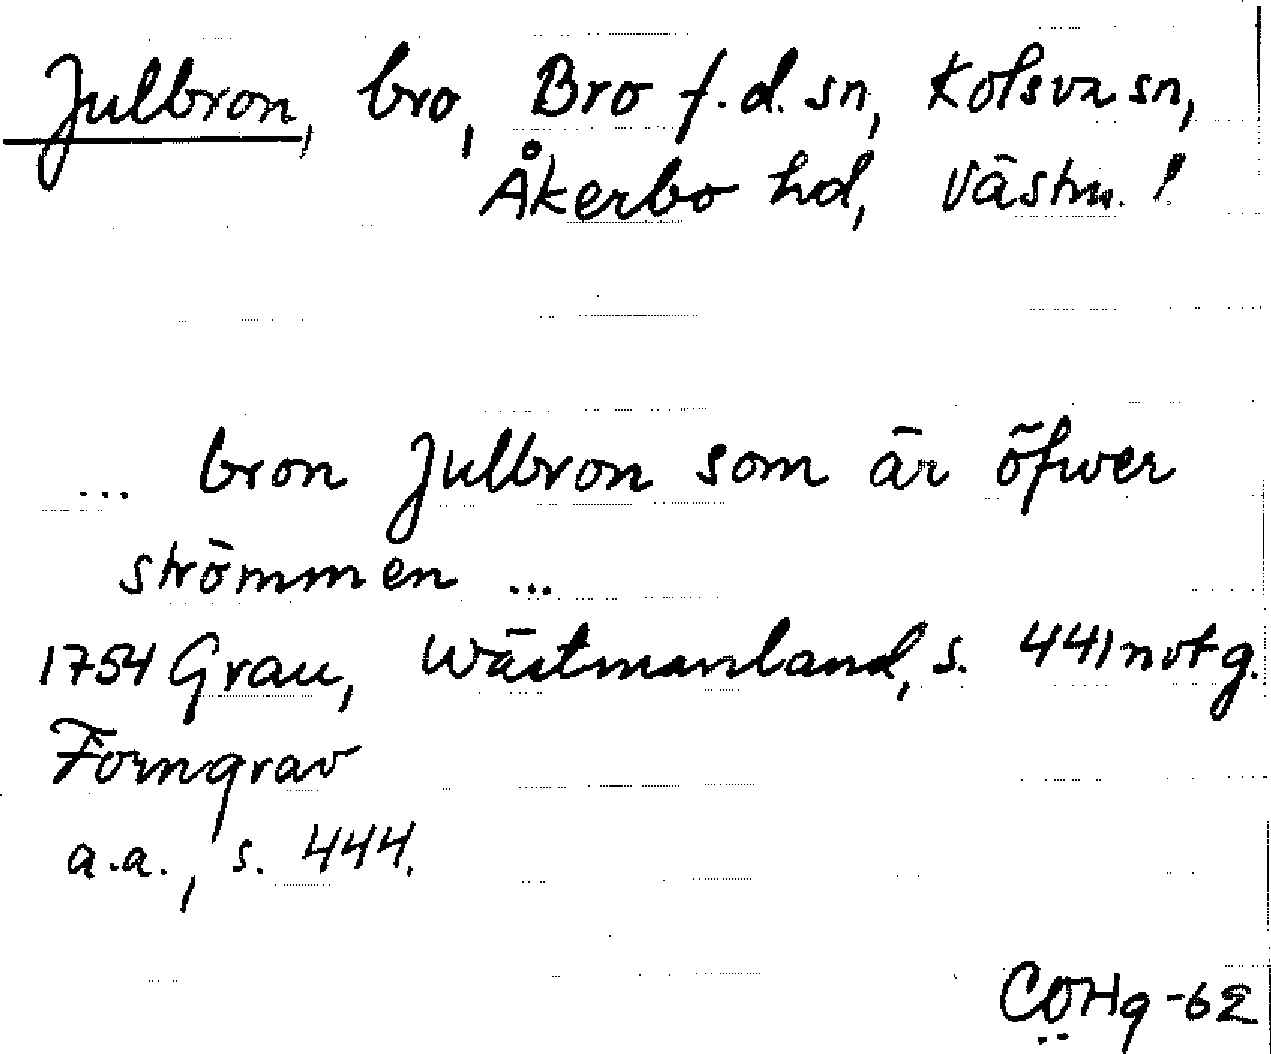 Julbron, bro, Bro f.d. sn, Kolsva sn,
Åkerbo hd, Västm. !
... bron Julbron som är öfwer
strömmen ...
1754 Grau, Wästmanland, s. 441 not g.
Forngrav
a.a., s. 444.
CÖHg -62